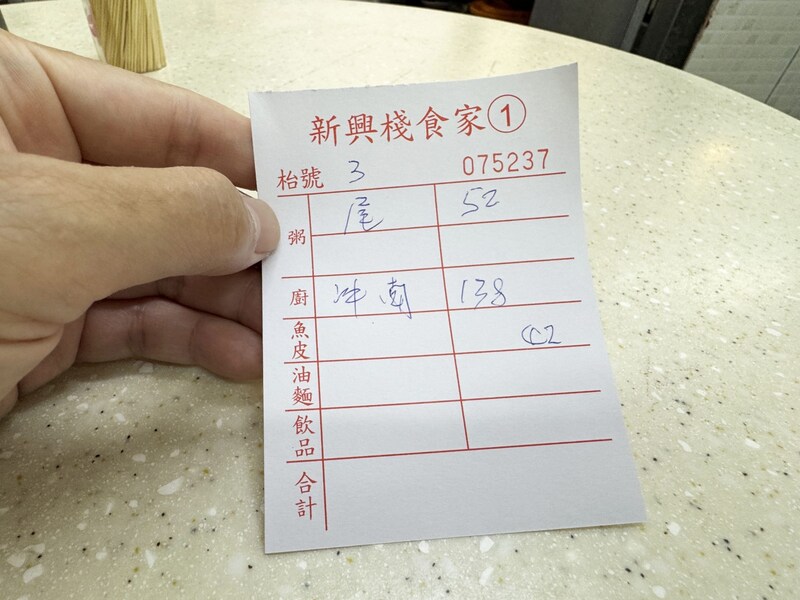 新興棧食家①
枱號 3 075237
粥 尾 52
廚 冲南 138
魚皮
油麵
飲品
合計